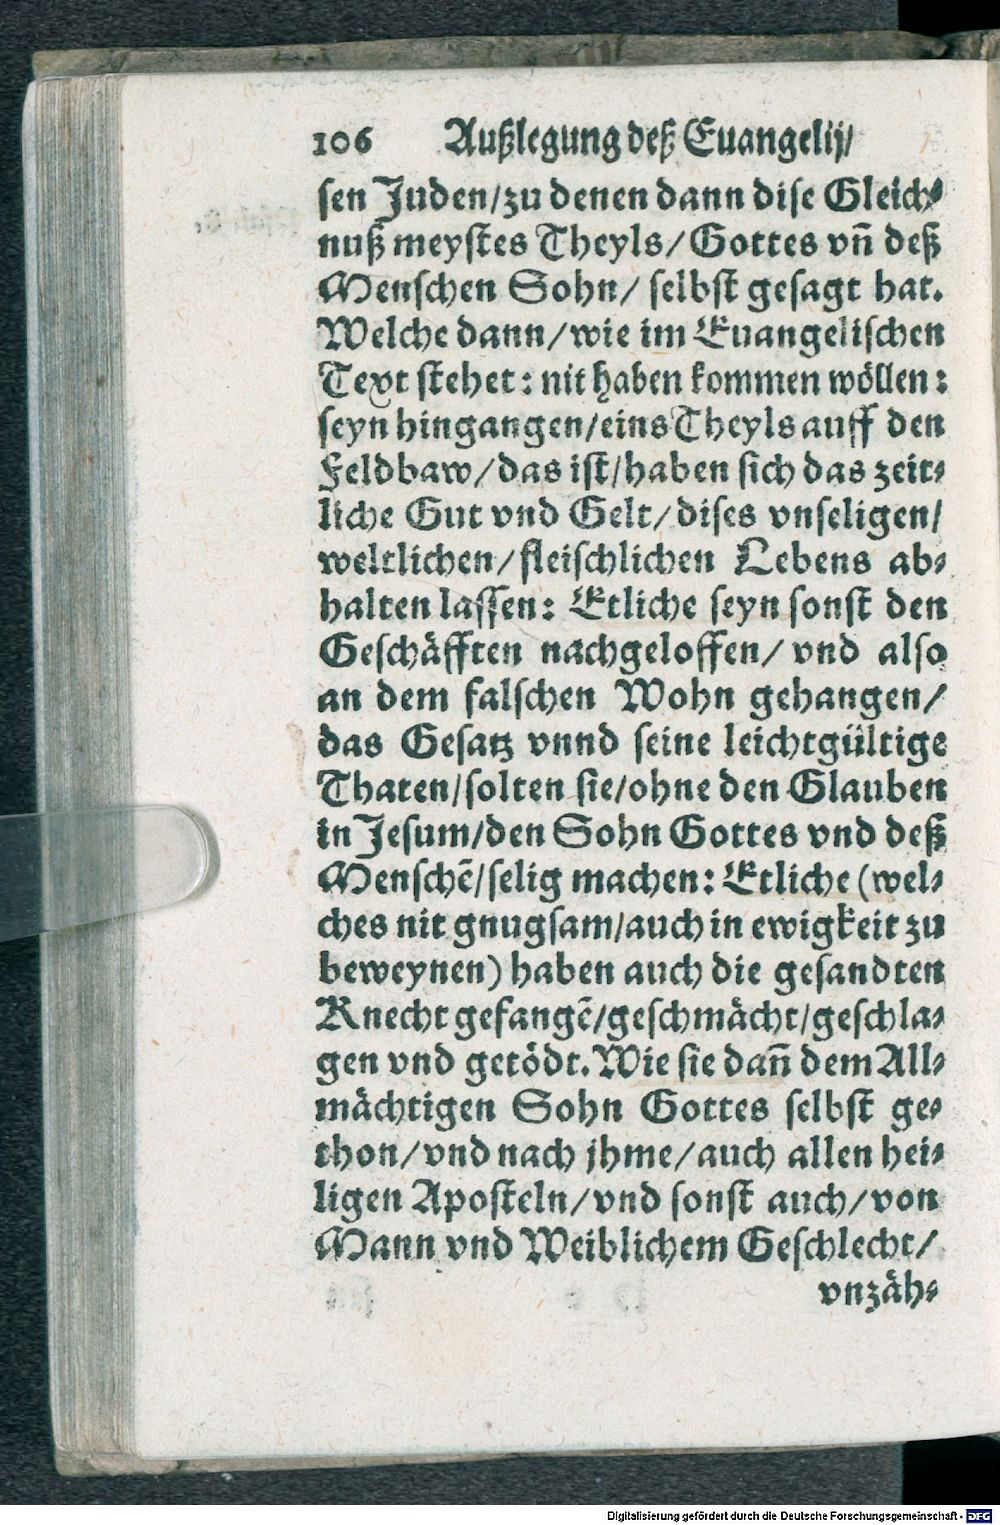 106 Außlegung deß Euangelij/
sen Juden/zu denen dann dise Gleich⸗
nuß meystes Theyls/Gottes vñ deß
Menschen Sohn/ selbst gesagt hat.
Welche dann/wie im Euangelischen
Text stehet: nit haben kommen wöllen:
seyn hingangen/eins Theyls auff den
Feldbaw/das ist/haben sich das zeit⸗
liche Gut vnd Gelt/dises vnseligen/
weltlichen/fleischlichen Lebens ab⸗
halten lassen: Etliche seyn sonst den
Geschäfften nachgeloffen/ vnd also
an dem falschen Wohn gehangen/
das Gesatz vnnd seine leichtgültige
Thaten/solten sie/ohne den Glauben
in Jesum/den Sohn Gottes vnd deß
Menschē/selig machen: Etliche (wel⸗
ches nit gnugsam/auch in ewigkeit zu
beweynen) haben auch die gesandten
Knecht gefangē/geschmächt/geschla⸗
gen vnd getödt. Wie sie dañ dem All⸗
mächtigen Sohn Gottes selbst ge⸗
thon/vnd nach jhme/auch allen hei⸗
ligen Aposteln/vnd sonst auch/von
Mann vnd Weiblichem Geschlecht/
vnzäh⸗
Digitalisierung gefördert durch die Deutsche Forschungsgemeinschaft - DFG